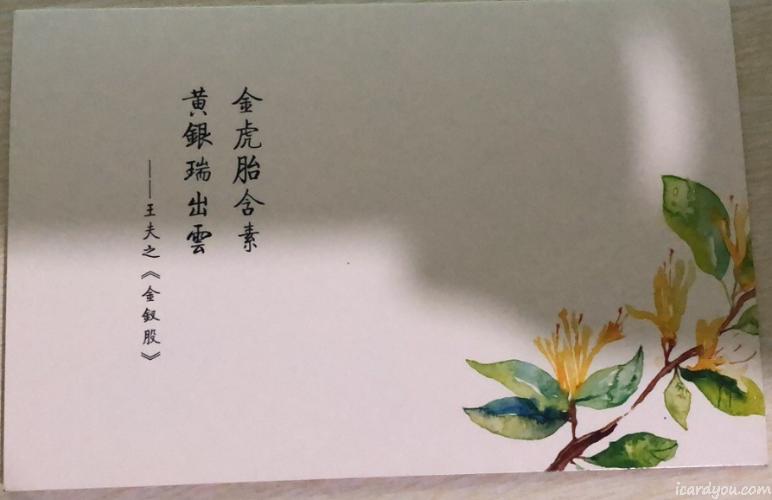 金虎胎含素
黄銀瑞出雲
——王夫之《金釵股》
icardyou.com